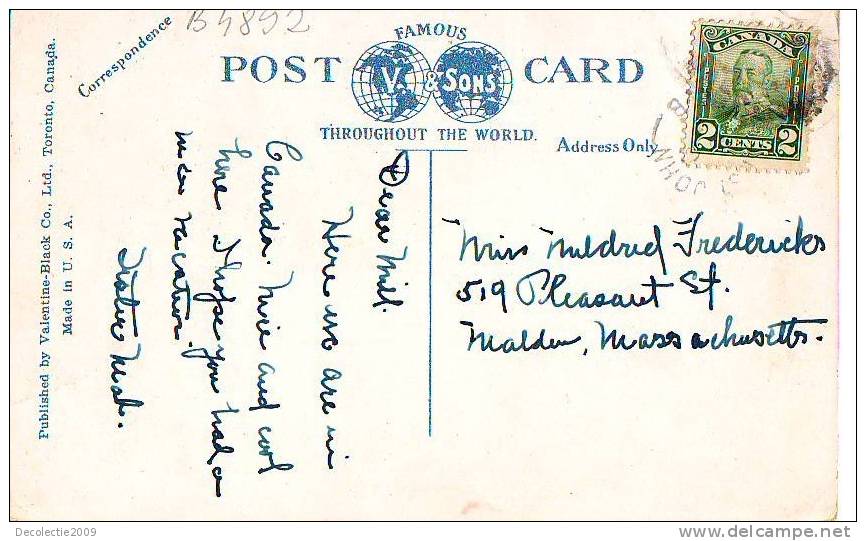 B4892
FAMOUS
POST CARD
V. & SONS
THROUGHOUT THE WORLD.
Correspondence
Address Only
CANADA
POSTES
2 CENTS 2
JOHN
Published by Valentine-Black Co., Ltd., Toronto, Canada.
Made in U. S. A.
Dear Mill.
Here we are in
Canada. Nice and cool
here. I hope you had a
nice vacation.
Sister
Miss Mildred Fredericks
519 Pleasant St.
Malden, Massachusetts.
Decolectie2009
www.delcampe.net